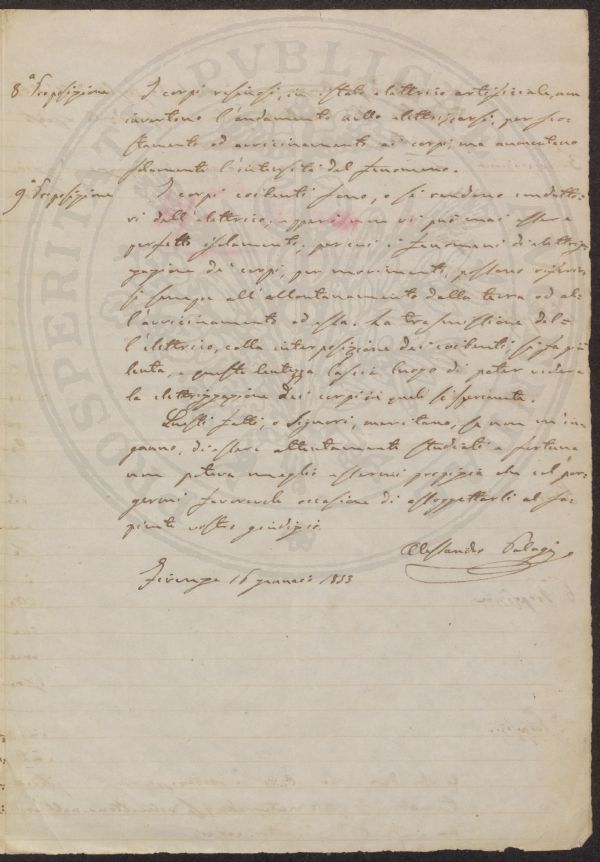 8ª Proposizione I corpi resinosi, in istato elettrico artifiziale, non
invertono l'andamento nello elettrizzarsi, per sco=
stamento od avvicinamento ai corpi, ma aumentano
solamente l'intensità del fenomeno.
9ª Proposizione I corpi coibenti sono, o si rendono condutto=
ri dell'elettrico, eppure non vi può mai essere
perfetto isolamento; per cui i fenomeni di elettriz=
zazione dei corpi, per movimenti, possono riferir=
si sempre all'allontanamento dalla terra od al=
l'avvicinamento ad essa. La trasmissione del=
l'elettrico, colla interposizione dei coibenti si fa più
lenta, e questa lentezza lascia luogo di poter vedere
la elettrizzazione dei corpi coi quali si sperimenta.
Questi fatti, o Signori, meritano, se non m'in=
ganno, di essere attentamente studiati e fortuna
non poteva meglio essermi propizia che col por=
germi favorevole occasione di assoggettarli al sa=
piente vostro giudizio.
Alessandro Palagi
Firenze 16 gennaio 1853
PROSPERITATI PUBLICAE